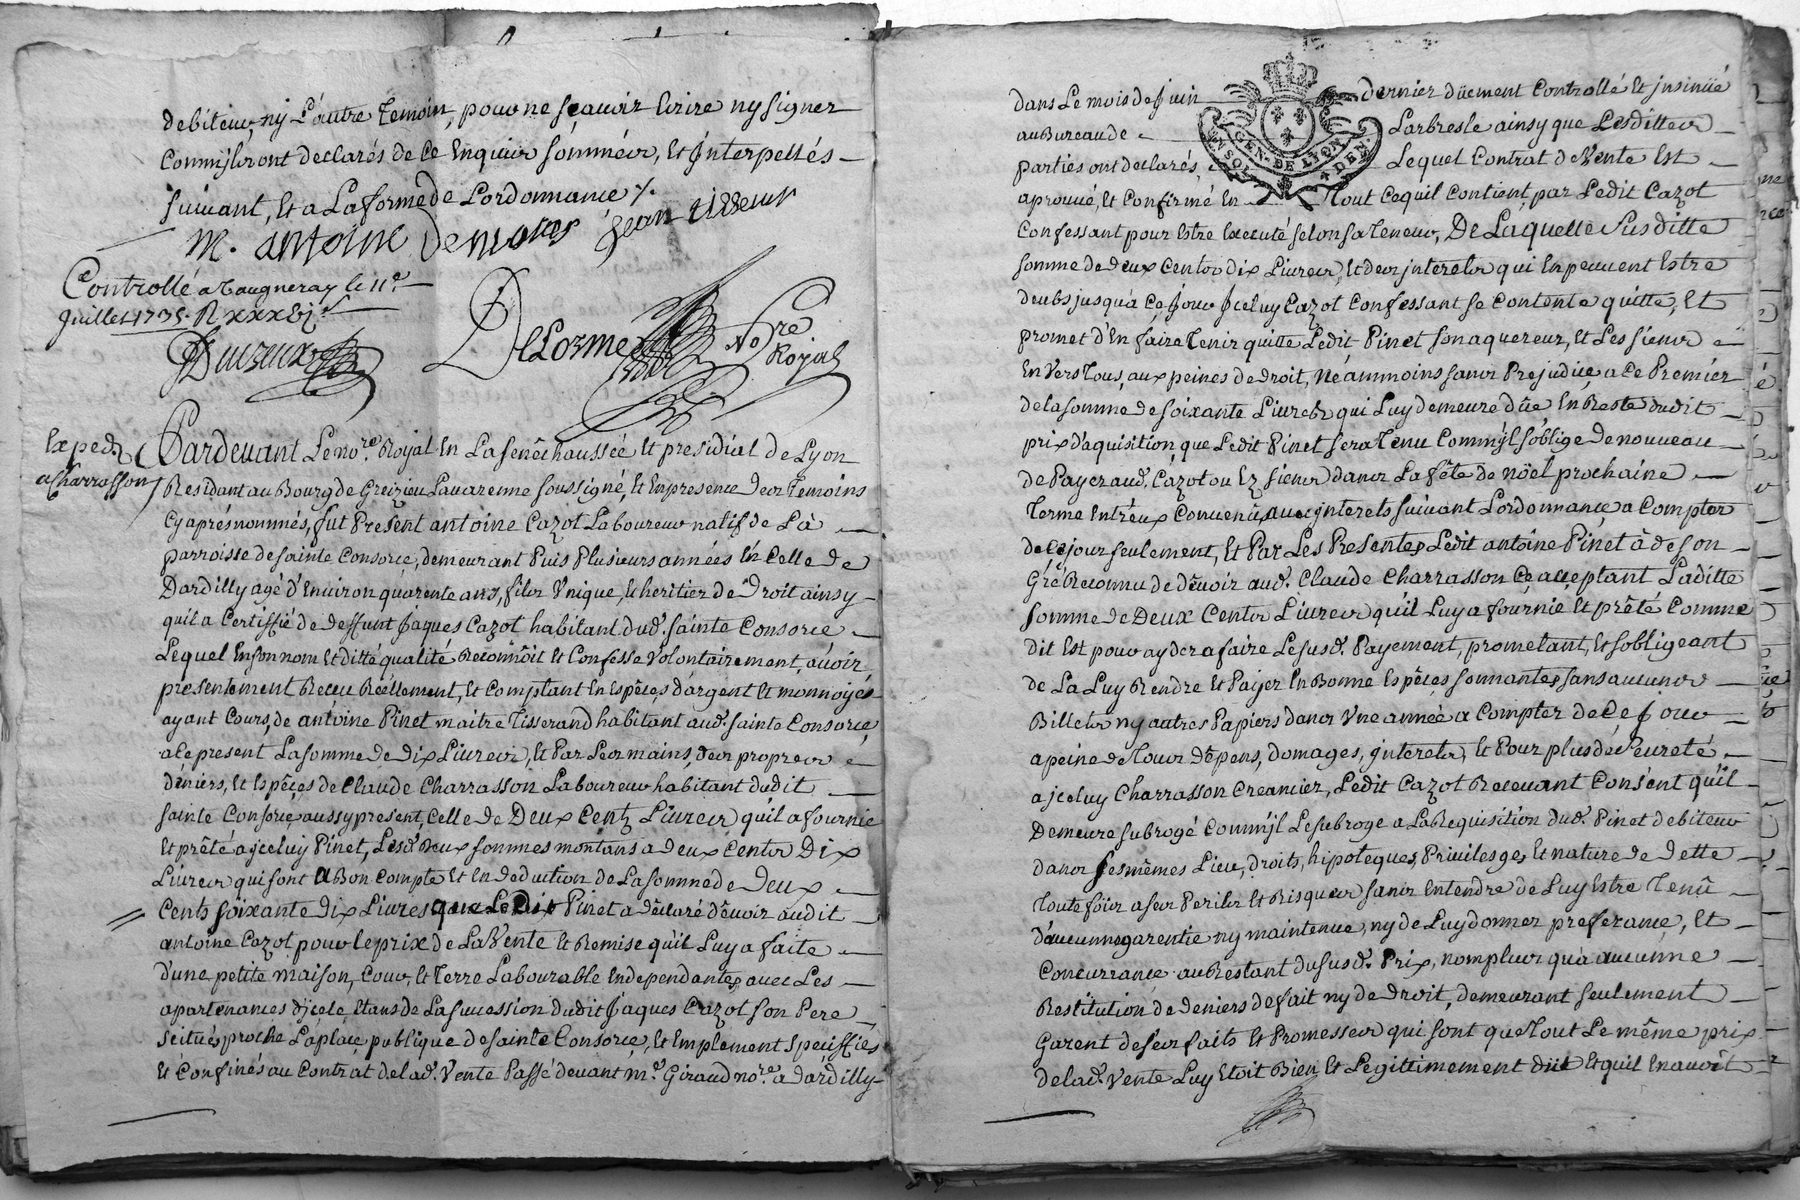 debiteur, ny L'autre Temoin, pour ne sçavoir Ecrire ny signer
Comm'ils ont declarés de Ce Enquis sommés, Et Interpellés
suivant, Et a La forme de Lordonnance /.
M. antoine Democes Jean tisseur
Controllé a Vaugneray le 11e
Juillet 1735. R xxx
DeLorme Nore Royal
Exped. a Charrasson
Pardevant Le nore. Royal En La senêchaussée Et presidial de Lyon
Residant au Bourg de Greizieu Lavarenne soussigné, Et En presence des Temoins
Cy aprés nommés, fut Present antoine Cazot Laboureur natif de La
parroisse de sainte Consorce, demeurant Puis Plusieurs années En Celle de
Dardilly agé d'Environ quarente ans, fils Vnique, Et heritier de Droit ainsy
quil a Certiffié de deffunt Jaques Cazot habitant dud. sainte Consorce
Lequel En son nom Et ditte qualité Reconnôit Et Confesse Volontairement, avoir
presentement Receu Réellement, Et Comptant En Espêces d'argent Et monnoyes
ayant Cours, de antoine Pinet maitre Tisserand habitant aud. sainte Consorce,
a Ce present La somme de dix Livres, Et Par Les mains, des propres
deniers, Et Espêces de Claude Charrasson Laboureur habitant dudit
sainte Consorce, aussy present, Celle de Deux Cents Livres qu'il a fournie
Et prêté a jceluy Pinet, Lesd. deux sommes montans a deux Cents Dix
Livres qui sont a Bon Compte Et En deduction de La somme de Deux
Cents soixante dix Livres que Ledit Pinet a dêclaré dêvoir audit
antoine Cazot pour le prix de La Vente Et Remise qu'il Luy a faite
d'une petite maison, Cour, Et Terre Labourable En dependantes avec Les
apartenances d'jcele Etans de La succession dudit Jaques Cazot son Pere
scitués proche La place publique de sainte Consorce, Et Emplement speciffiés
Et Confinés au Contrat de lad. Vente Passé devant me. Giraud nore. a Dardilly
dans Le mois de Juin dernier dûement Controllé Et jnsinüé
au Bureau de Larbresle ainsy que Lesdittes
parties ont declarés, Lequel Contrat de Vente Est
aprouvé, Et Confirmé En Tout Ce quil Contient, par Ledit Cazot
GEN. DE LYON
Confessant pour Estre Executé selon sa Teneur, De Laquelle susditte
somme de deux Cents dix Livres, Et des jnterets qui En peuvent Estre
deubs jusqu'a Ce Jour Jceluy Cazot Confessant se Contente quitte, Et
promet d'En faire Tenir quitte Ledit Pinet son aquereur, Et Les siens
En Vers Tous, aux peines de droit, Néammoins sans Prejudice a Ce Premier
de la somme de soixante Livres qui Luy demeure dûe En Reste dudit
prix d'aquisition que Ledit Pinet sera Tenu Comm'jl s'oblige de nouveau
de Payer aud. Cazot ou Ez siens dans La fête de nöel prochaine
Terme Entr'eux Convenû, avec jnterets suivant Lordonnance a Compter
de Ce jour seulement, Et Par Les Presentes Ledit antoine Pinet à de son
Gré Reconnu de dêvoir aud. Claude Charrasson Ce acceptant Laditte
somme de Deux Cents Livres qu'il Luy a fournie Et prêté Comme
dit Est pour ayder a faire Le susd. Payement, prometant, Et s'obligeant
de La Luy Rendre Et Payer En Bonne Espêces sonnantes sans aucuns
Billets ny autres Papiers dans Vne année a Compter de Ce Jour
a peine de Tous dêpens, domages, jnterets, Et Pour plus de seureté
a jceluy Charrasson Creancier, Ledit Cazot Recevant Consent qu'il
Demeure subrogé Comm'jl Le subroge a La Requisition dud. Pinet debiteur
dans ses mêmes Lieu, droits, hipoteques, Privileges, Et nature de dette
Toute fois a ses Perils Et Risques sans Entendre de Luy Estre Tenû
d'aucunne garentie ny maintenue, ny de Luy donner preferance, Et
Concurrance au Restant du susd. Prix, nomplus qu'à aucunne
Restitution de deniers de fait ny de droit, demeurant seulement
Garent de ses faits Et Promesses qui sont que Tout Le même prix
de lad. Vente Luy Etoit Bien Et Legittimement dût Et quil En avoit